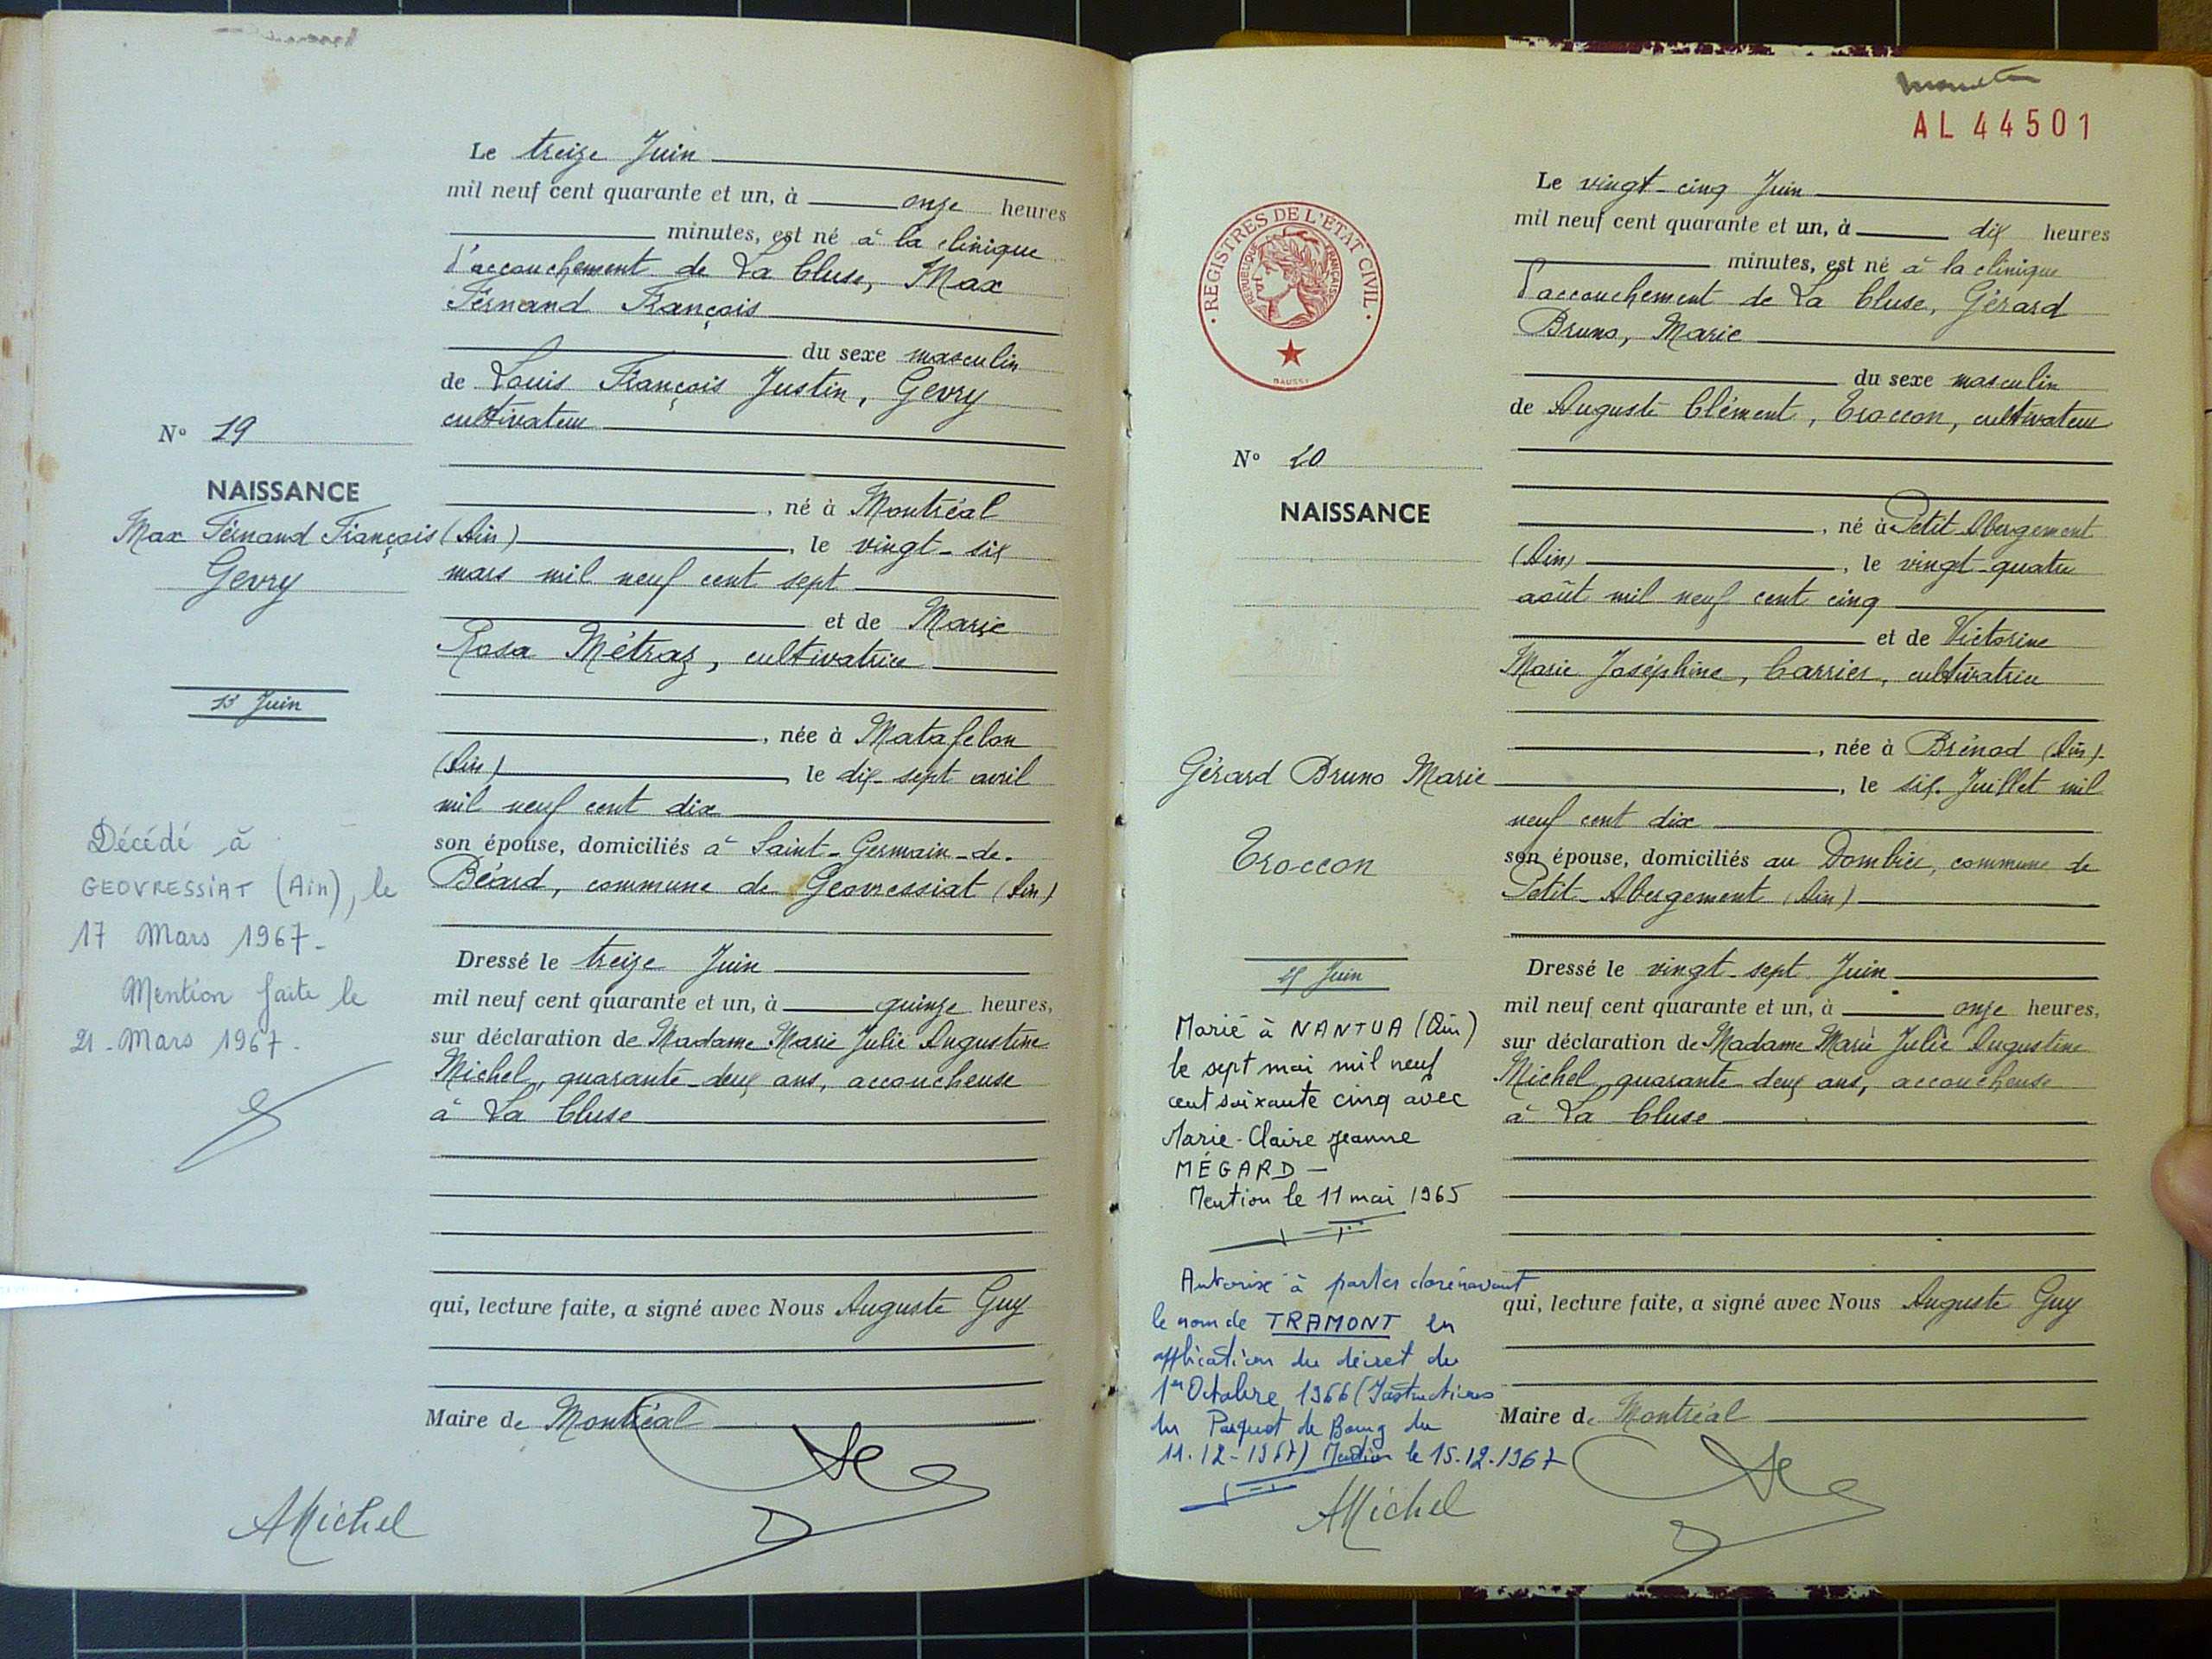 Le treize Juin
mil neuf cent quarante et un, à onze heures
minutes, est né à la clinique
d'accouchement de La Cluse, Max
Fernand François
du sexe masculin
de Louis François Justin, Gevry
cultivateur
N° 19
NAISSANCE
Max Fernand François
Gevry
13 Juin
, né à Montréal
(Ain) , le vingt-six
mars mil neuf cent sept
et de Marie
Rosa Métraz, cultivatrice
, née à Matafelon
(Ain) le dix-sept avril
mil neuf cent dix
son épouse, domiciliés à Saint-Germain-de-
Béard, commune de Geovressiat (Ain)
Décédé à
GEOVRESSIAT (Ain), le
17 Mars 1967.
Mention faite le
21 Mars 1967.
Dressé le treize Juin
mil neuf cent quarante et un, à quinze heures,
sur déclaration de Madame Marie Julie Augustine
Michel, quarante-deux ans, accoucheuse
à La Cluse
qui, lecture faite, a signé avec Nous Auguste Guy
Maire de Montréal
AMichel
AL 44501
REGISTRES DE L'ÉTAT CIVIL
RÉPUBLIQUE FRANÇAISE
Le vingt-cinq Juin
mil neuf cent quarante et un, à dix heures
minutes, est né à la clinique
d'accouchement de La Cluse, Gérard
Bruno, Marie
du sexe masculin
de Auguste Clément, Troccon, cultivateur
N° 20
NAISSANCE
Gérard Bruno Marie
Troccon
25 Juin
, né à Petit Abergement
(Ain) , le vingt-quatre
août mil neuf cent cinq
et de Victorine
Marie Joséphine, Carrier, cultivatrice
, née à Brénod (Ain).
, le six Juillet mil
neuf cent dix
son épouse, domiciliés au Dombier, commune de
Petit-Abergement (Ain)
Dressé le vingt-sept Juin
mil neuf cent quarante et un, à onze heures,
sur déclaration de Madame Marie Julie Augustine
Michel, quarante deux ans, accoucheuse
à La Cluse
qui, lecture faite, a signé avec Nous Auguste Guy
Maire de Montréal
Marié à NANTUA (Ain)
le sept mai mil neuf
cent soixante cinq avec
Marie-Claire Jeanne
MÉGARD —
Mention le 11 mai 1965
Autorisé à porter dorénavant
le nom de TRAMONT en
application du décret du
1er Octobre 1966 (Instructions
du Parquet de Bourg du
11.12-1967) Mention le 15.12.1967
AMichel